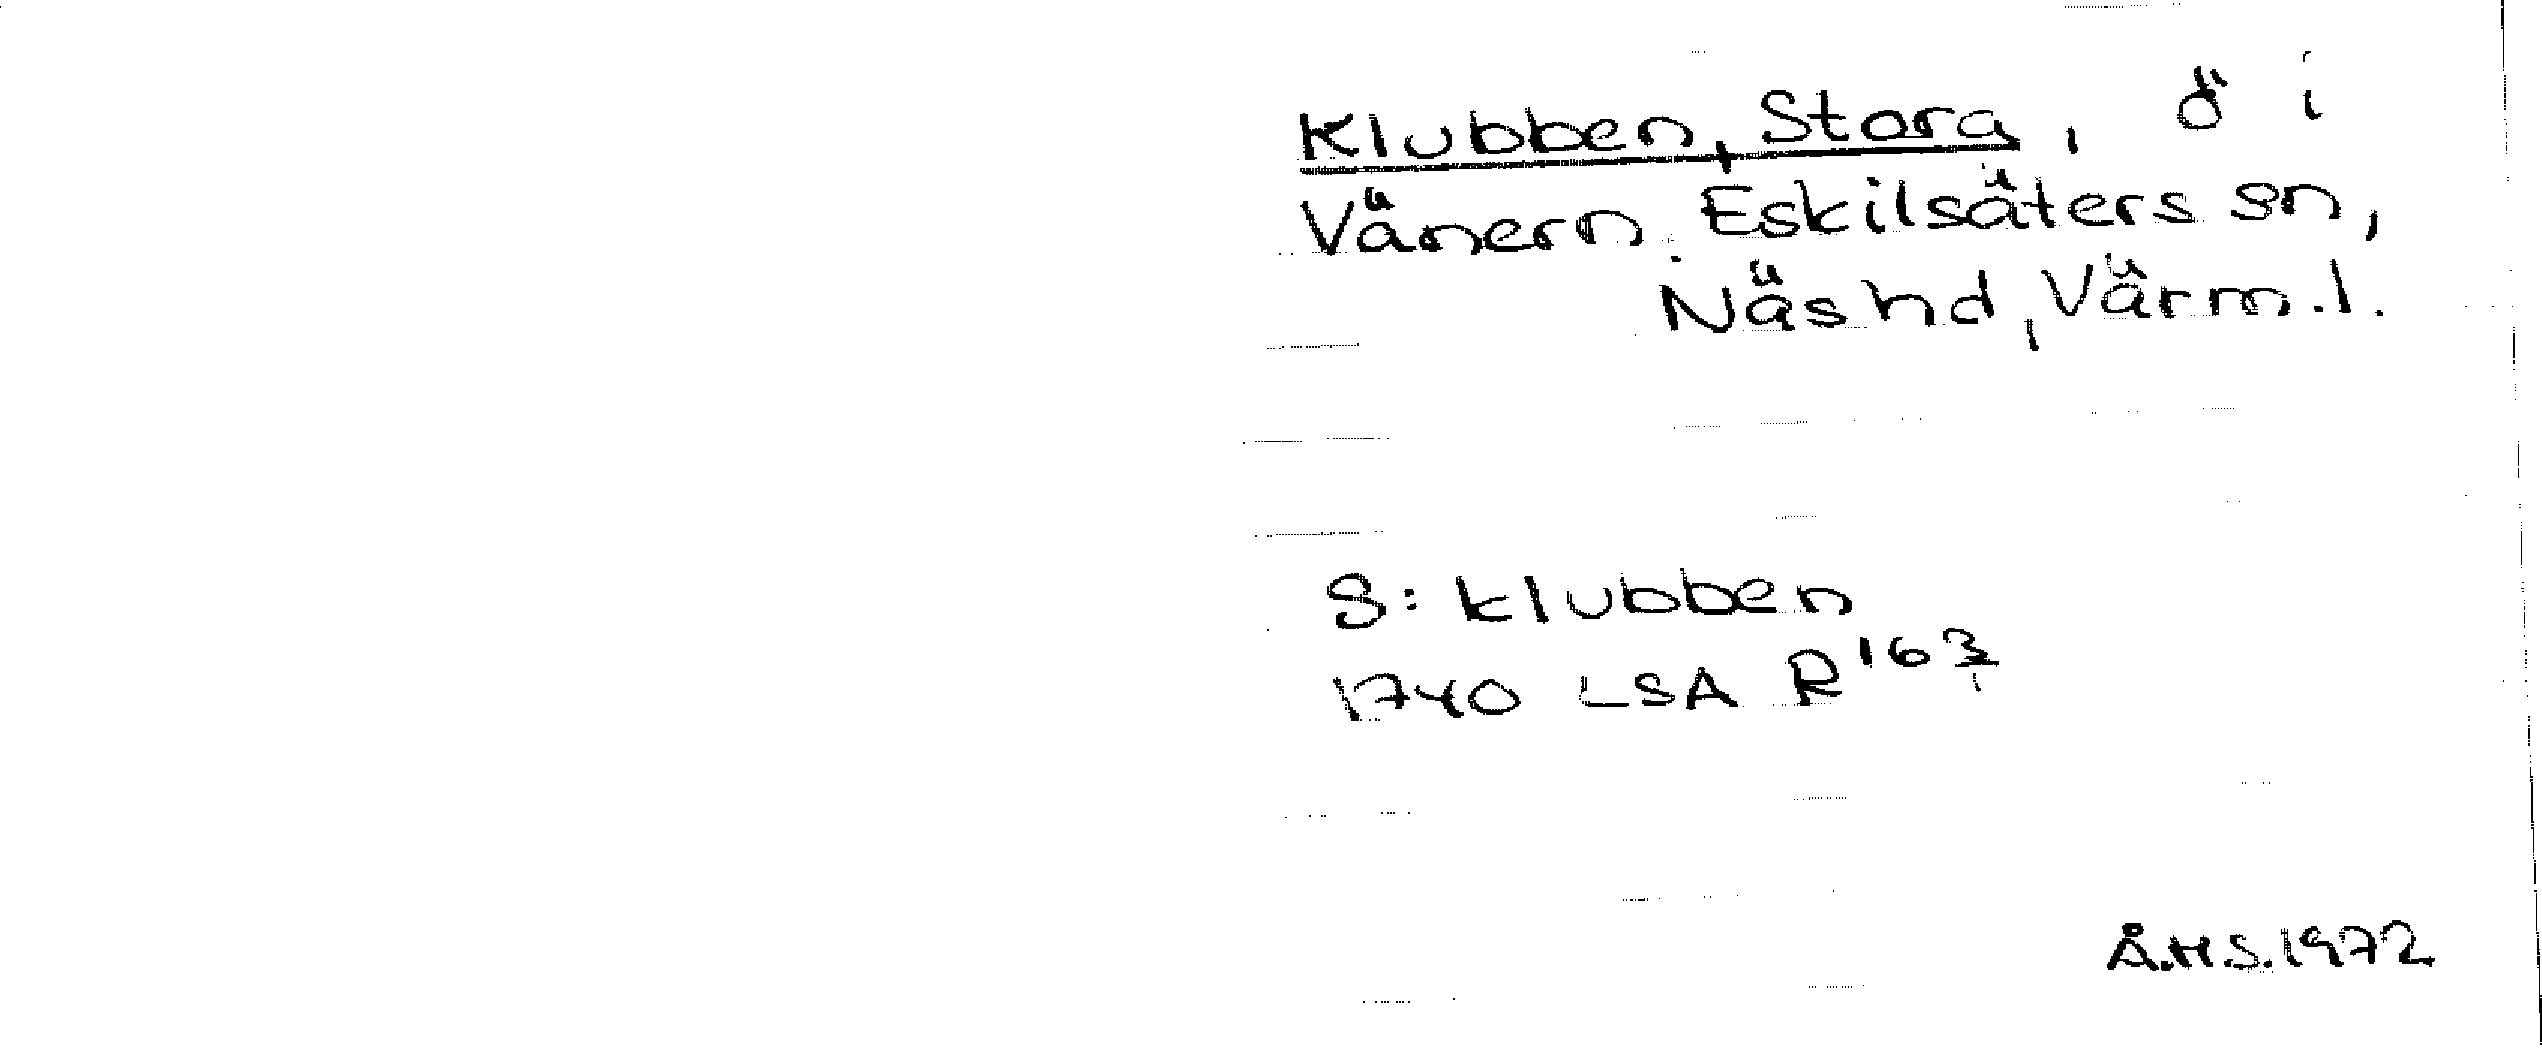 Klubben, Stora, ö i
Vänern. Eskilsäters sn,
Näs hd, Värm.l.
S: klubben
1740 LSA R 163/1
Å.H.S.1972